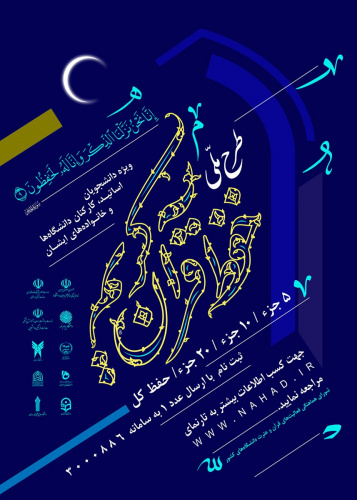 إِنَّا نَحْنُ نَزَّلْنَا الذِّكْرَ وَإِنَّا لَهُ لَحَافِظُونَ
طرح ملّی
حفظ قرآن کریم
ویژه دانشجویان
اساتید، کارکنان دانشگاه‌ها
و خانواده‌های ایشان
۵ جزء / ۱۰ جزء / ۲۰ جزء / حفظ کل
ثبت نام با ارسال عدد ۱ به سامانه ۳۰۰۰۸۸۶
جهت کسب اطلاعات بیشتر به تارنمای
WWW.NAHAD.IR
مراجعه نمایید.
شورای هماهنگی فعالیت‌های قرآن و عترت دانشگاه‌های کشور